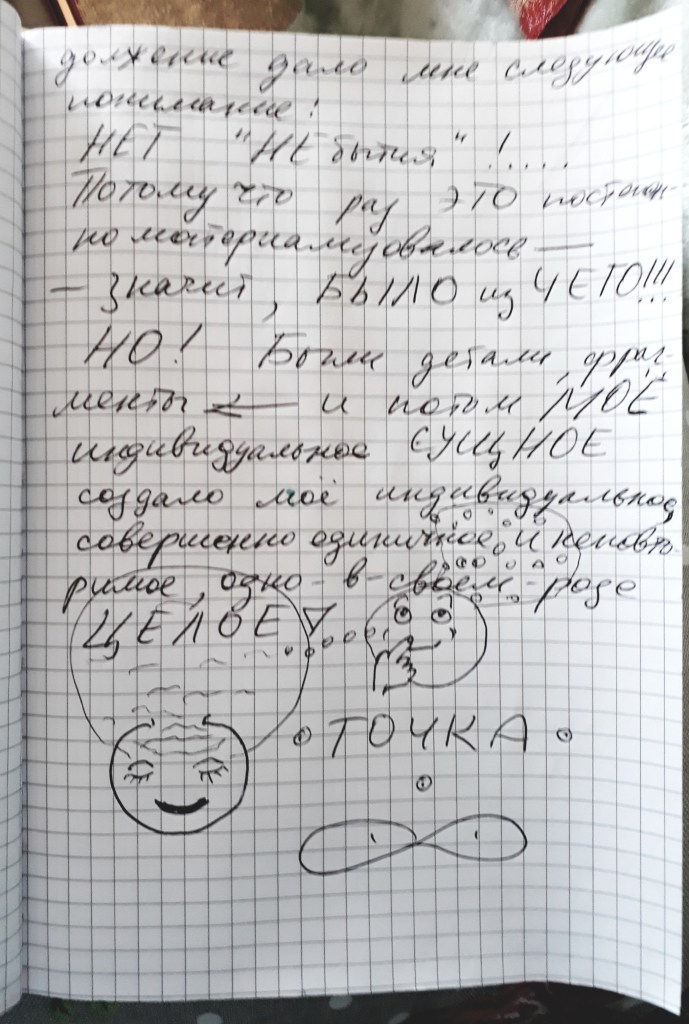 должение дало мне следующее
понимание:
НЕТ "НЕ бытия" !....
Потому что раз ЭТО постоян-
но материализовалось —
— Значит, БЫЛО из ЧЕГО!!!
НО! Были детали, фраг-
менты — и потом МОЁ
индивидуальное СУЩНОЕ
создало моё индивидуальное,
совершенно одиничное и неповто-
римое, одно-в-своём-роде
ЦЕЛОЕ!
ТОЧКА